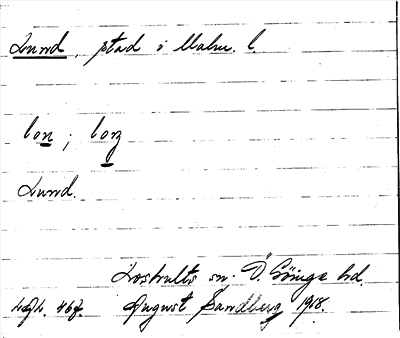 Lund, stad i Malm. l.
lon ; lorz
Lund.
Loshults sn. Ö. Göinge hd.
August Sandberg 1918.